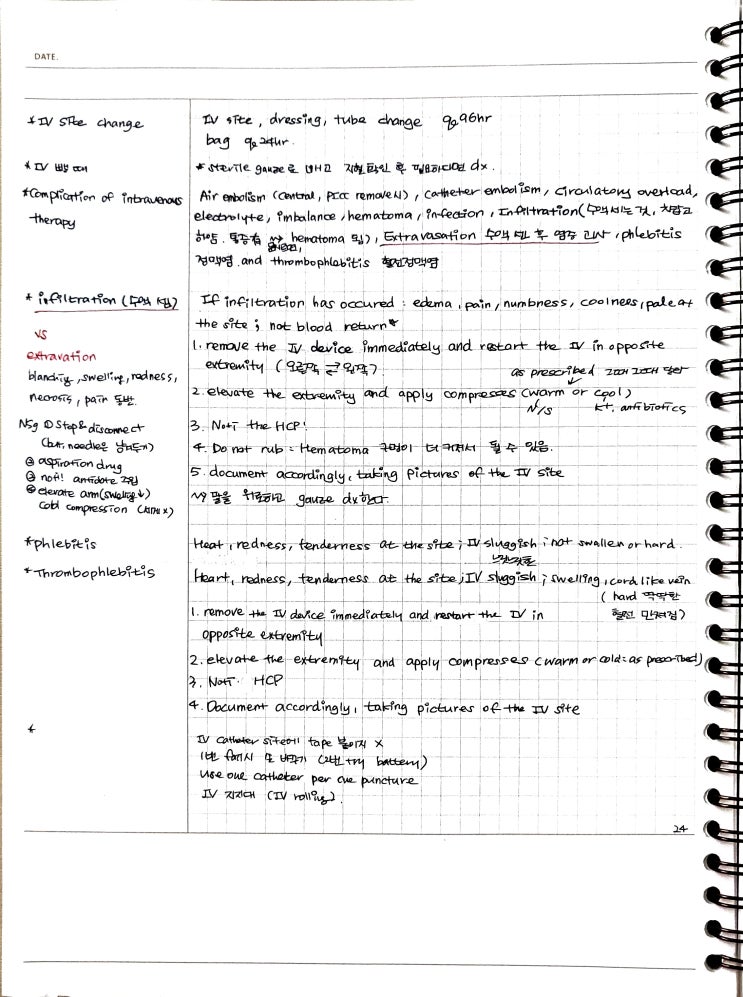 DATE.
* IV site change
IV site, dressing, tube change q 96hr
bag q 24hr.
* IV 뺄 때
* sterile gauze로 빼고 지혈확인 후 필요하다면 dx.
* Complication of intravenous
therapy
Air embolism (central, PICC remove시), catheter embolism, circulatory overload,
electrolyte, imbalance, hematoma, infection, Infiltration (수액새는것, 차갑고
하얗, 통증有 hematoma 됨), Extravasation 수액 괴사, phlebitis
정맥염, and thrombophlebitis 혈전정맥염
* infiltration (수액 샘)
VS
extravation
blanchig, swelling, redness,
necrosis, pain 동반.
Nsg ① Stop & disconnect
(but, needle은 남겨두기)
② aspiration drug
③ noti! antidote
④ elevate arm (swelling↓)
cold compression
If infiltration has occured : edema, pain, numbness, coolness, pale at
the site ; not blood return *
1. remove the IV device immediately and restart the IV in opposite
extremity (오른쪽 왼쪽)
as prescribed
2. elevate the extremity and apply compresses (warm or cool)
N/S K+, antibiotics
3. Noti the HCP!
4. Do not rub : Hematoma 구멍이 더 커져서 될 수 있음.
5. document accordingly, taking pictures of the IV site
gauze dx한다.
* phlebitis
Heat, redness, tenderness at the site ; IV sluggish ; not swallen or hard.
* Thrombophlebitis
Heart, redness, tenderness at the site ; IV sluggish ; swelling, cord like vein
(hard 딱딱한
혈전 만져짐)
1. remove the IV device immediately and restart the IV in
opposite extremity
2. elevate the extremity and apply compresses (warm or cold : as prescribed)
3. Noti HCP
4. Document accordingly, taking pictures of the IV site
*
IV catheter site에 tape 붙이지 x
1번 fail시 또 바꾸기 (2번 try battery)
use one catheter per one puncture
IV 지지대 (IV rolling).
24